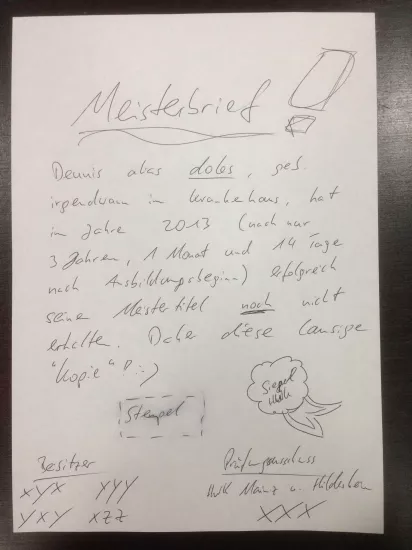 Meisterbrief !
Dennis alias dolos, geb.
irgendwann im Krankenhaus, hat
im Jahre 2013 (nach nur
3 Jahren, 1 Monat und 14 Tage
nach Ausbildungsbeginn) erfolgreich
seine Meistertitel noch nicht
erhalten. Daher diese lausige
"Kopie" :-)
Siegel
Stempel
Besitzer
xyx yyy
yxy xzz
Prüfungsausschuss
HWK Mainz u.
XXX